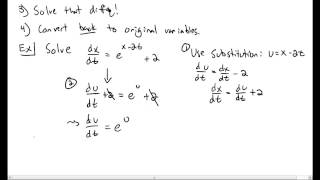 3) Solve that diffq!
4) Convert back to original variables.
Ex) Solve dx/dt = e^(x-2t) + 2
① Use substitution: u=x-2t
du/dt = dx/dt - 2
dx/dt = du/dt + 2
② du/dt + 2 = e^u + 2
⇝ du/dt = e^u